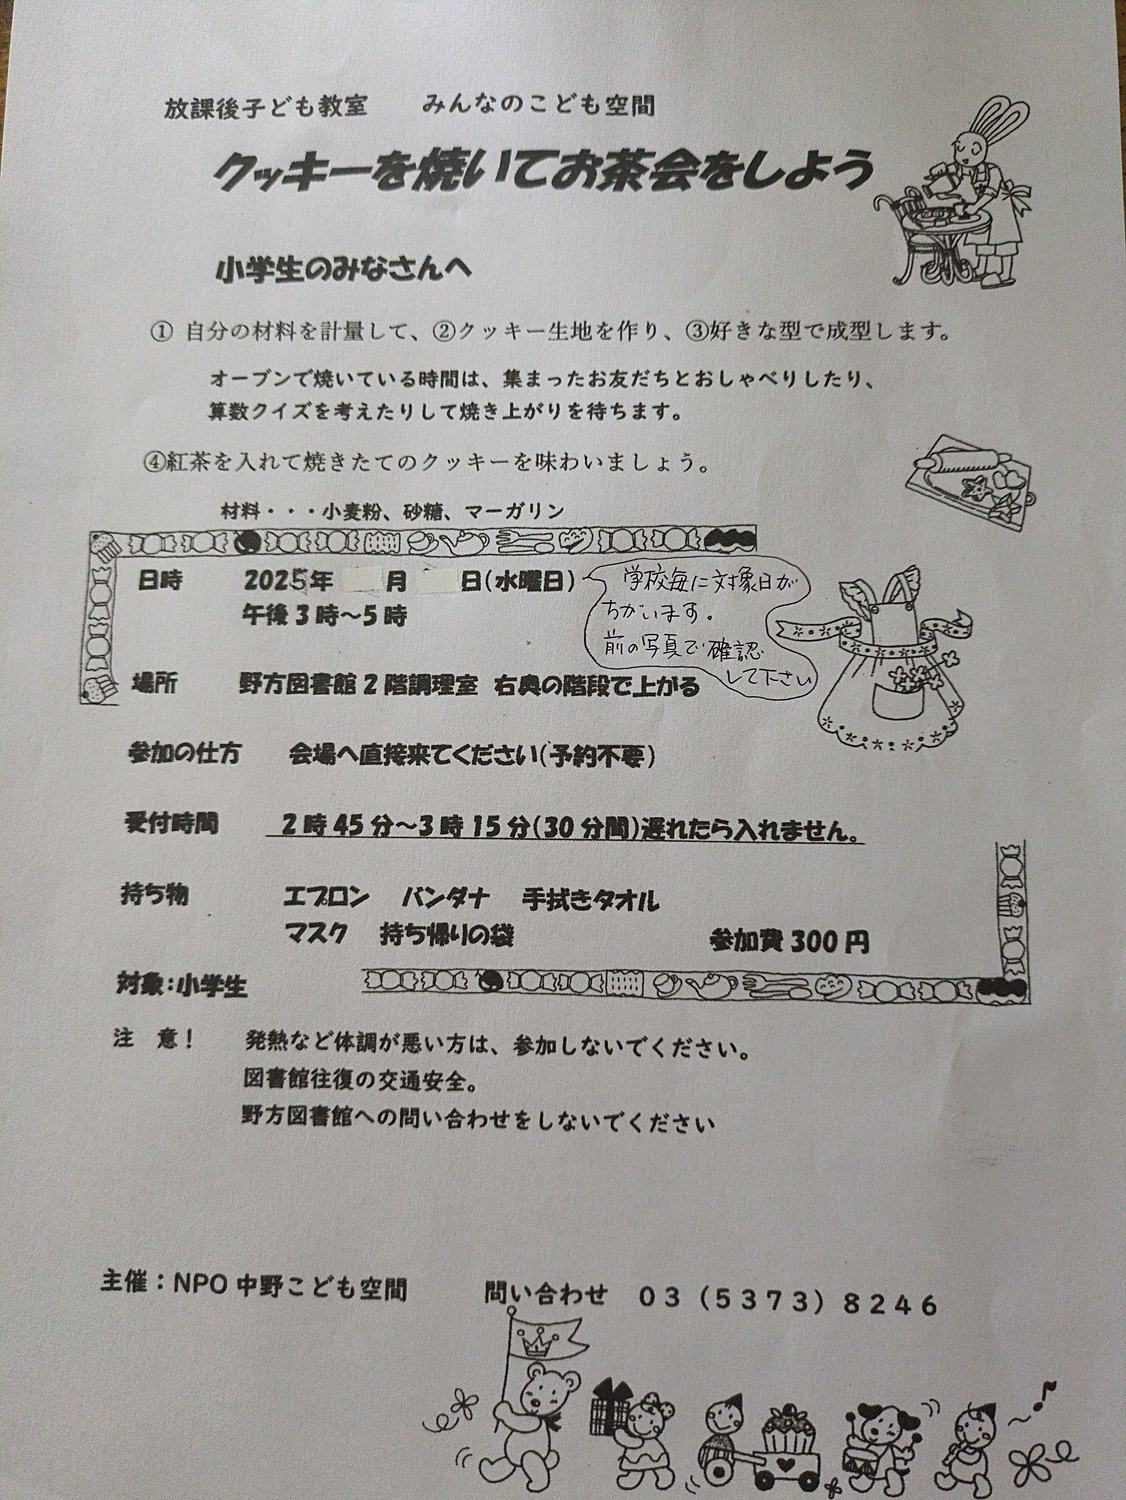 放課後子ども教室　みんなのこども空間
クッキーを焼いてお茶会をしよう
小学生のみなさんへ
① 自分の材料を計量して、②クッキー生地を作り、③好きな型で成型します。
オーブンで焼いている時間は、集まったお友だちとおしゃべりしたり、
算数クイズを考えたりして焼き上がりを待ちます。
④紅茶を入れて焼きたてのクッキーを味わいましょう。
材料・・・小麦粉、砂糖、マーガリン
日時　2025年　月　日(水曜日)
午後3時～5時
学校毎に対象日が
ちがいます。
前の写真で確認
して下さい
場所　野方図書館2階調理室　右奥の階段で上がる
参加の仕方　会場へ直接来てください(予約不要)
受付時間　2時45分～3時15分(30分間)遅れたら入れません。
持ち物　エプロン　バンダナ　手拭きタオル
マスク　持ち帰りの袋　参加費300円
対象:小学生
注　意！　発熱など体調が悪い方は、参加しないでください。
図書館往復の交通安全。
野方図書館への問い合わせをしないでください
主催：NPO中野こども空間　問い合わせ　０３（５３７３）８２４６